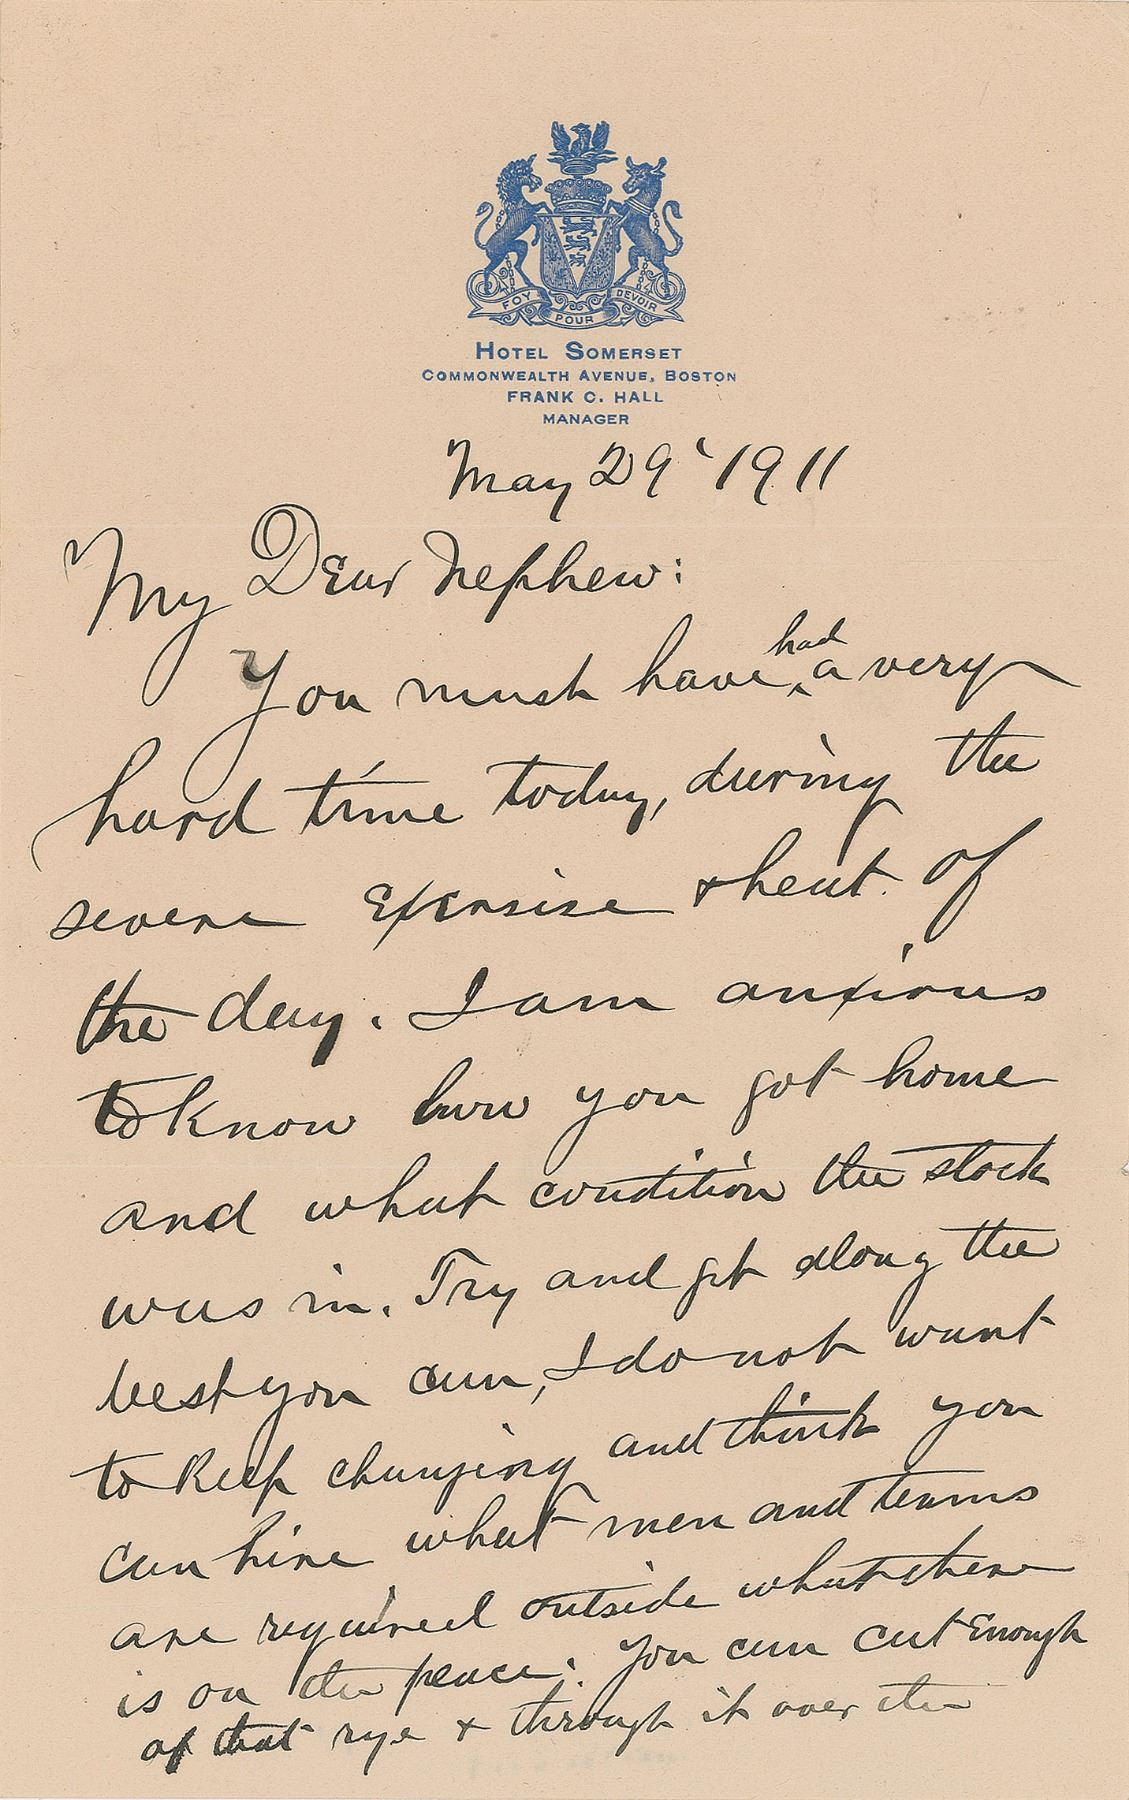 FOY POUR DEVOIR
HOTEL SOMERSET
COMMONWEALTH AVENUE, BOSTON
FRANK C. HALL
MANAGER
May 29 '1911
My Dear Nephew:
You must have had a very
hard time today, during the
severe exersise & heat of
the day. I am anxious
to know how you got home
and what condition the stock
was in. Try and get along the
best you can, I do not want
to keep changing and think you
can hire what men and teams
are required outside what there
is on the peace. You can cut enough
of that rye & through it over the